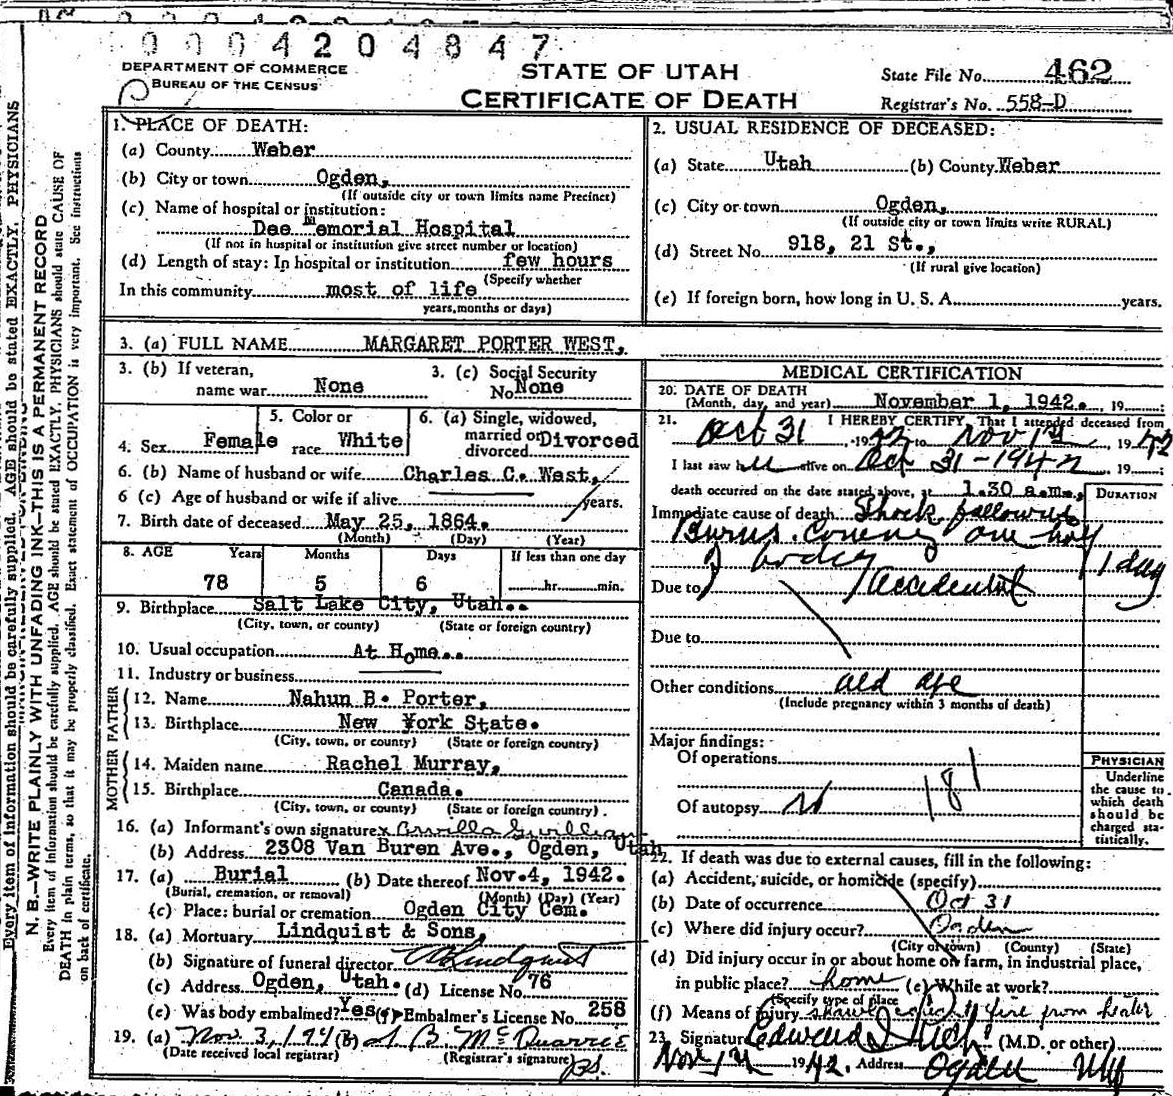 0 0 0 4 2 0 4 8 4 7
DEPARTMENT OF COMMERCE
BUREAU OF THE CENSUS
STATE OF UTAH
CERTIFICATE OF DEATH
State File No. 462
Registrar's No. 558-D
1. PLACE OF DEATH:
(a) County Weber
(b) City or town Ogden,
(If outside city or town limits name Precinct)
(c) Name of hospital or institution:
Dee Memorial Hospital
(If not in hospital or institution give street number or location)
(d) Length of stay: In hospital or institution few hours
(Specify whether
In this community most of life
years, months or days)
2. USUAL RESIDENCE OF DECEASED:
(a) State Utah (b) County Weber
(c) City or town Ogden,
(If outside city or town limits write RURAL)
(d) Street No. 918, 21 St.,
(If rural give location)
(e) If foreign born, how long in U. S. A. years.
3. (a) FULL NAME MARGARET PORTER WEST,
3. (b) If veteran, name war None
3. (c) Social Security No. None
4. Sex Female
5. Color or race White
6. (a) Single, widowed, married or divorced Divorced
6. (b) Name of husband or wife Charles C. West,
6 (c) Age of husband or wife if alive years.
7. Birth date of deceased May 25, 1864.
(Month) (Day) (Year)
8. AGE Years Months Days If less than one day
78 5 6 hr. min.
9. Birthplace Salt Lake City, Utah..
(City, town, or county) (State or foreign country)
10. Usual occupation At Home..
11. Industry or business
FATHER
12. Name Nahun B. Porter,
13. Birthplace New York State.
(City, town, or county) (State or foreign country)
MOTHER
14. Maiden name Rachel Murray,
15. Birthplace Canada.
(City, town, or county) (State or foreign country).
16. (a) Informant's own signature x
(b) Address 2308 Van Buren Ave., Ogden, Utah
17. (a) Burial (b) Date thereof Nov. 4, 1942.
(Burial, cremation, or removal) (Month) (Day) (Year)
(c) Place: burial or cremation Ogden City Cem.
18. (a) Mortuary Lindquist & Sons,
(b) Signature of funeral director Lindquist
(c) Address Ogden, Utah. (d) License No. 76
(e) Was body embalmed? Yes (f) Embalmer's License No. 258
19. (a) Nov. 3, 194 (B) B. McQuarrie
(Date received local registrar) (Registrar's signature)
MEDICAL CERTIFICATION
20. DATE OF DEATH
(Month, day, and year) November 1, 1942. , 19
21. I HEREBY CERTIFY, That I attended deceased from
Oct 31 19 42 to Nov 1st 19 42
I last saw h alive on Oct 31 - 1942 , 19
death occurred on the date stated above, at 1.30 a.m.,
DURATION
Immediate cause of death Shock following
Burns. Covering one half
of body 1 day
Due to Accidental
Due to
Other conditions old age
(Include pregnancy within 3 months of death)
Major findings:
Of operations
Of autopsy 181
PHYSICIAN
Underline
the cause to
which death
should be
charged sta-
tistically.
22. If death was due to external causes, fill in the following:
(a) Accident, suicide, or homicide (specify)
(b) Date of occurrence Oct 31
(c) Where did injury occur? Ogden
(City or town) (County) (State)
(d) Did injury occur in or about home on farm, in industrial place,
in public place? home (e) While at work?
(Specify type of place)
(f) Means of injury shawl caught fire from heater
23. Signature Edward (M.D. or other)
Nov 1st 1942. Address Ogden Utah
N. B.—WRITE PLAINLY WITH UNFADING INK—THIS IS A PERMANENT RECORD
Every item of information should be carefully supplied. AGE should be stated EXACTLY, PHYSICIANS should state CAUSE OF
DEATH in plain terms, so that it may be properly classified. Exact statement of OCCUPATION is very important. See instructions
on back of certificate.
Every item of information should be carefully supplied. AGE should be stated EXACTLY, PHYSICIANS